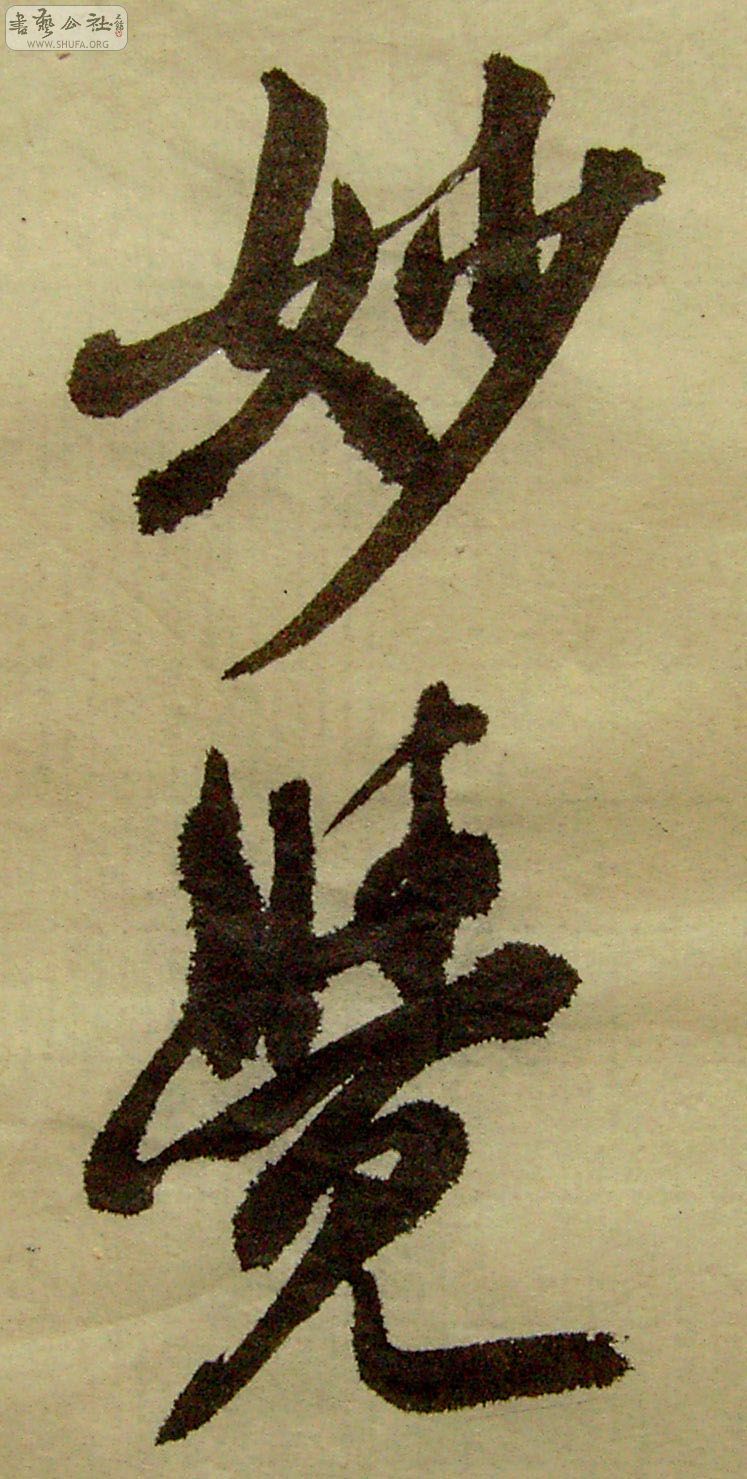 書藝公社
WWW.SHUFA.ORG
妙覺